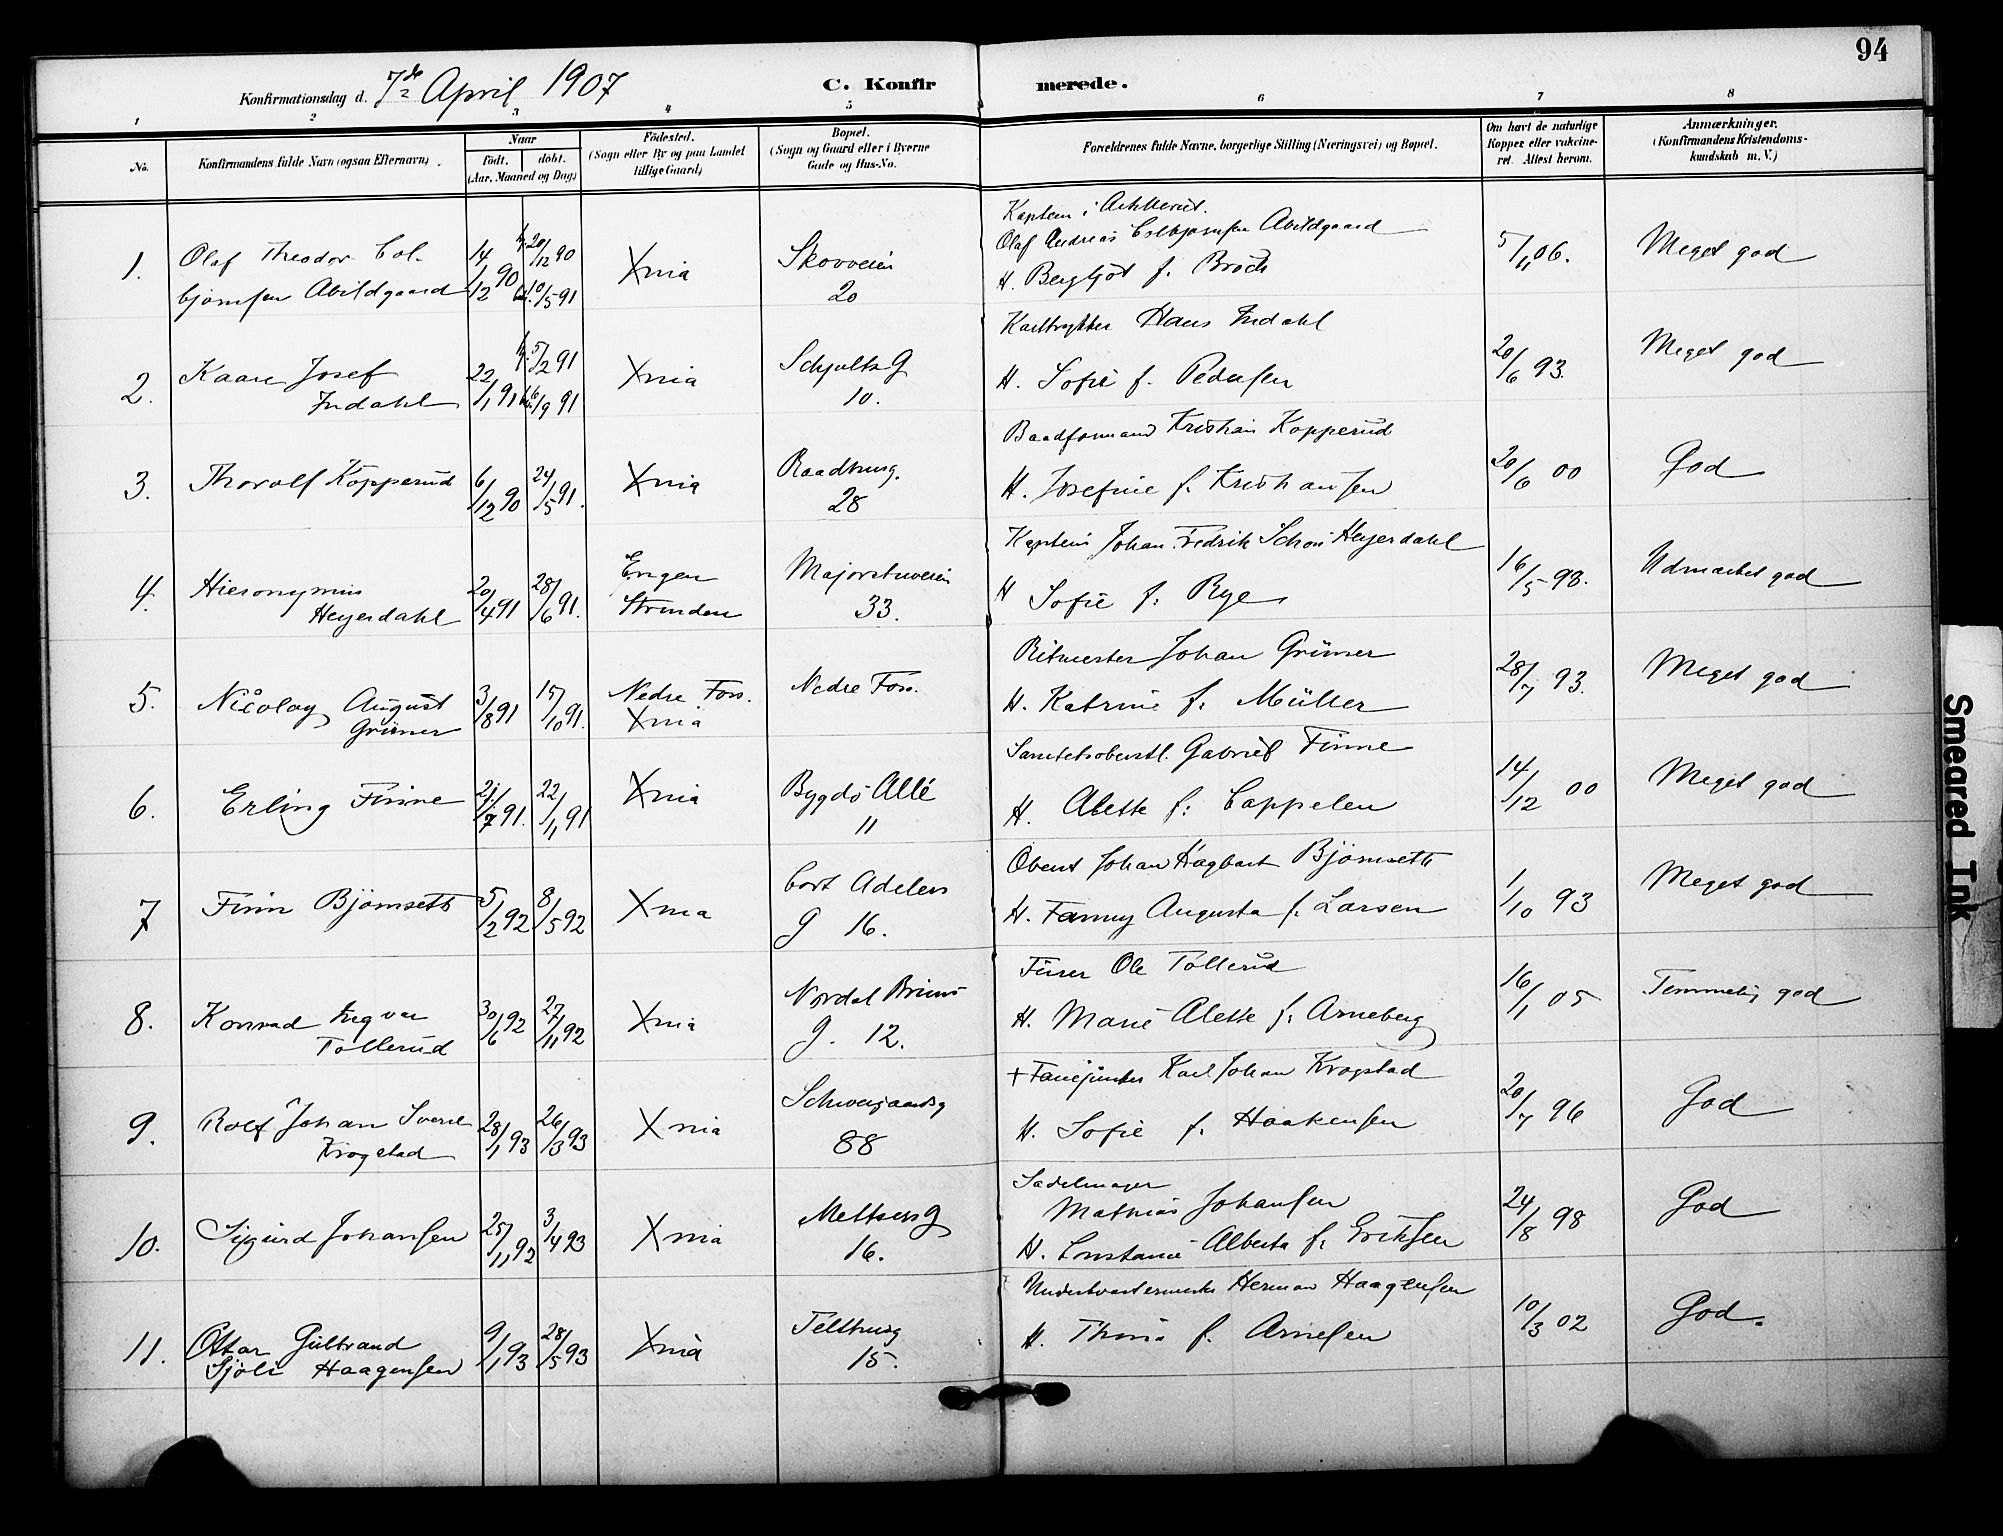 94
Konfirmationsdag d. 7de April 1907 C. Konfirmerede.
1 2 3 4 5 6 7 8
No. Konfirmandens fulde Navn (ogsaa Efternavn). Naar Födt. döbt. (Aar, Maaned og Dag) Födested. (Sogn eller By og paa Landet tillige Gaard) Bopæl. (Sogn og Gaard eller i Byerne Gade og Hus-No. Forældrenes fulde Navne, borgerlige Stilling (Næringsvei) og Bopæl. Om havt de naturlige Kopper eller vakcineret. Attest herom. Anmærkninger. (Konfirmandens Kristendomskundskab m. V.)
Kaptein i Artilleriet.
1. Olaf Theodor Col- 14/12 90 20/12 90 Xnia Skovveien Olaf Andreas Colbjørnsen Abildgaard 5/11 06. Meget god
bjørnsen Abildgaard 10/5 91 20 H. Bergljot f. Broch
Hans Indahl
2. Kaare Josef 22/1 91 5/2 91 Xnia Schjultz G 20/6 93. Meget god
Indahl 16/9 91 10. H. Sofie f. Pedersen
Baadformand Kristian Kopperud
3. Thorolf Kopperud 6/12 90 24/5 91. Xnia Raadhusg. 28 H. Josefine f. Kristiansen 20/6 00 God
Kaptein Johan Fredrik Schou Heyerdahl
4. Hieronymus 20/4 91 28/6 91. Engen Majorstuveien 16/5 98. Udmærket god
Heyerdahl Strinden 33. H Sofie f. Rye
Ritmester Johan Grüner
5. Nicolay August 3/8 91 15/10 91. Nedre Foss. Nedre Foss. 28/7 93. Meget god
Grüner Xnia H. Katrine f. Müller
Sanitetsoberstl. Gabriel Finne
6. Erling Finne 21/7 91. 22/11 91 Xnia Bygdö Allé 11 H. Alette f. Cappelen 14/12 00 Meget god
Oberst Johan Hagbart Björnseth
7 Finn Björnseth 5/2 92 8/5 92 Xnia Cort Adelers g 16. H. Fanny Augusta f. Larsen 1/10 93 Meget god
Furer Ole Tollerud
8. Konrad Ingvar 30/6 92 27/11 92 Xnia Nordal Bruns 16/1 05 Temmelig god
Tollerud g. 12. H. Marie Alette f. Arneberg
+ Fanejunker Karl Johan Krogstad
9. Rolf Johan Sverre 28/1 93 26/3 93 Xnia Schweigaardsg 20/7 96 God
Krogstad 88 H. Sofie f. Haakensen
Sadelmager
10. Sigurd Johansen 25/11 92 3/4 93 Xnia Meltzers g Mathias Johansen 24/8 98 God
16. H. Constance Alberta f. Eriksen
Herman Haagensen
11. Ottar Gulbrand 9/1 93 28/5 93 Xnia Telthusg 10/3 02 God.
Sjöli Haagensen 15. H. Thora f. Arnesen
Smeared Ink